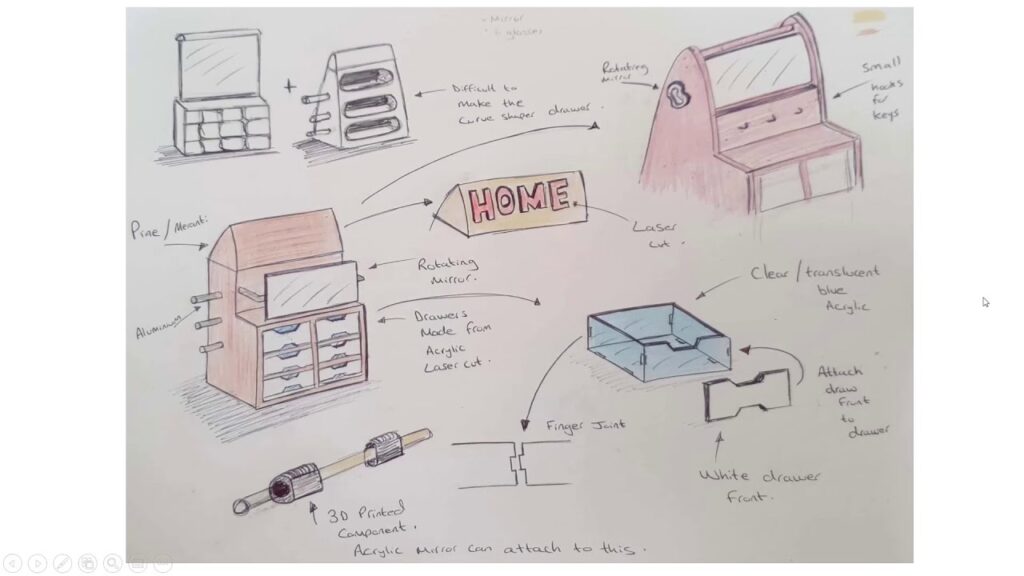 - Mirror
- 6 glasses
+
Difficult to
make the
curve shaper drawer.
Rotating
mirror
Small
hooks
for
keys
HOME
Laser
cut.
Pine / Meranti
Rotating
Mirror.
Aluminium
Drawers
Made from
Acrylic
Laser cut.
Clear / translucent
blue
Acrylic
Attach
draw
front
to
drawer
Finger Joint
White drawer
Front.
3D Printed
Component.
Acrylic Mirror can attach to this.